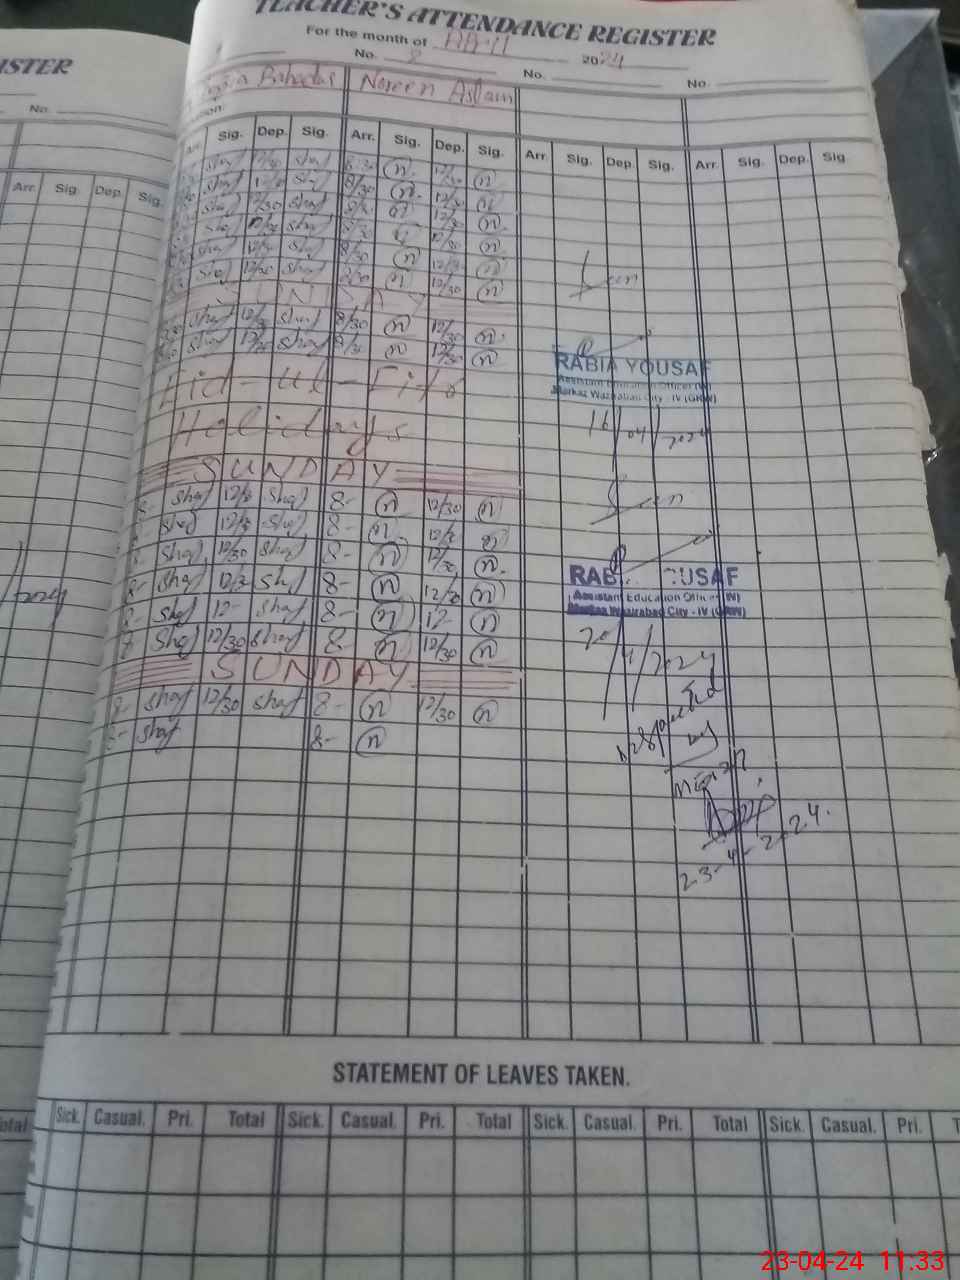 TEACHER'S ATTENDANCE REGISTER
For the month of April 2024
ISTER
No. No. 2 No. No.
Noreen Aslam
Sig. Dep. Sig. Arr. Sig. Dep. Sig. Arr. Sig. Dep. Sig. Arr. Sig. Dep. Sig.
Arr. Sig. Dep. Sig.
shaf 12/30 shaf 8:30 n 12/30 n
shaf 12/30 shaf 8/30 n 12/30 n
shaf 12/30 shaf 8/30 n 12/30 n
shaf 12/30 shaf 8/30 n 12/30 n
shaf 12/30 shaf 8/30 n 12/30 n
shaf 12/30 shaf 8/30 n 12/30 n
SUNDAY
shaf 12/30 shaf 8/30 n 12/30 n
shaf 12/30 shaf 8/30 n 12/30 n
Seen
RABIA YOUSAF
Assistant Education Officer (W)
Markaz Wazirabad City - IV (GRW)
16/04/2024
Eid-ul-Fitr
Holidays
SUNDAY
8- shaf 12/30 shaf 8- n 12/30 n
8- shaf 12/30 shaf 8- n 12/30 n
8- shaf 12/30 shaf 8- n 12/30 n
8- shaf 12/30 shaf 8- n 12/30 n
8- shaf 12- shaf 8- n 12- n
8 shaf 12/30 shaf 8- n 12/30 n
SUNDAY
8- shaf 12/30 shaf 8- n 12/30 n
8- shaf 8- n
Seen
RAB USAF
Assistant Education Officer (W)
Markaz Wazirabad City - IV (GRW)
20/4/2024
Inspected
by
23-4-2024.
STATEMENT OF LEAVES TAKEN.
Sick. Casual. Pri. Total Sick. Casual. Pri. Total Sick. Casual. Pri. Total Sick. Casual. Pri. T
otal
23-04-24 11:33